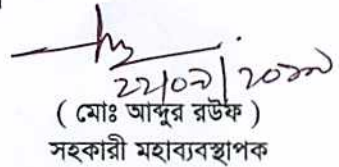 ২২|০৯|২০১৯
( মোঃ আব্দুর রউফ )
সহকারী মহাব্যবস্থাপক